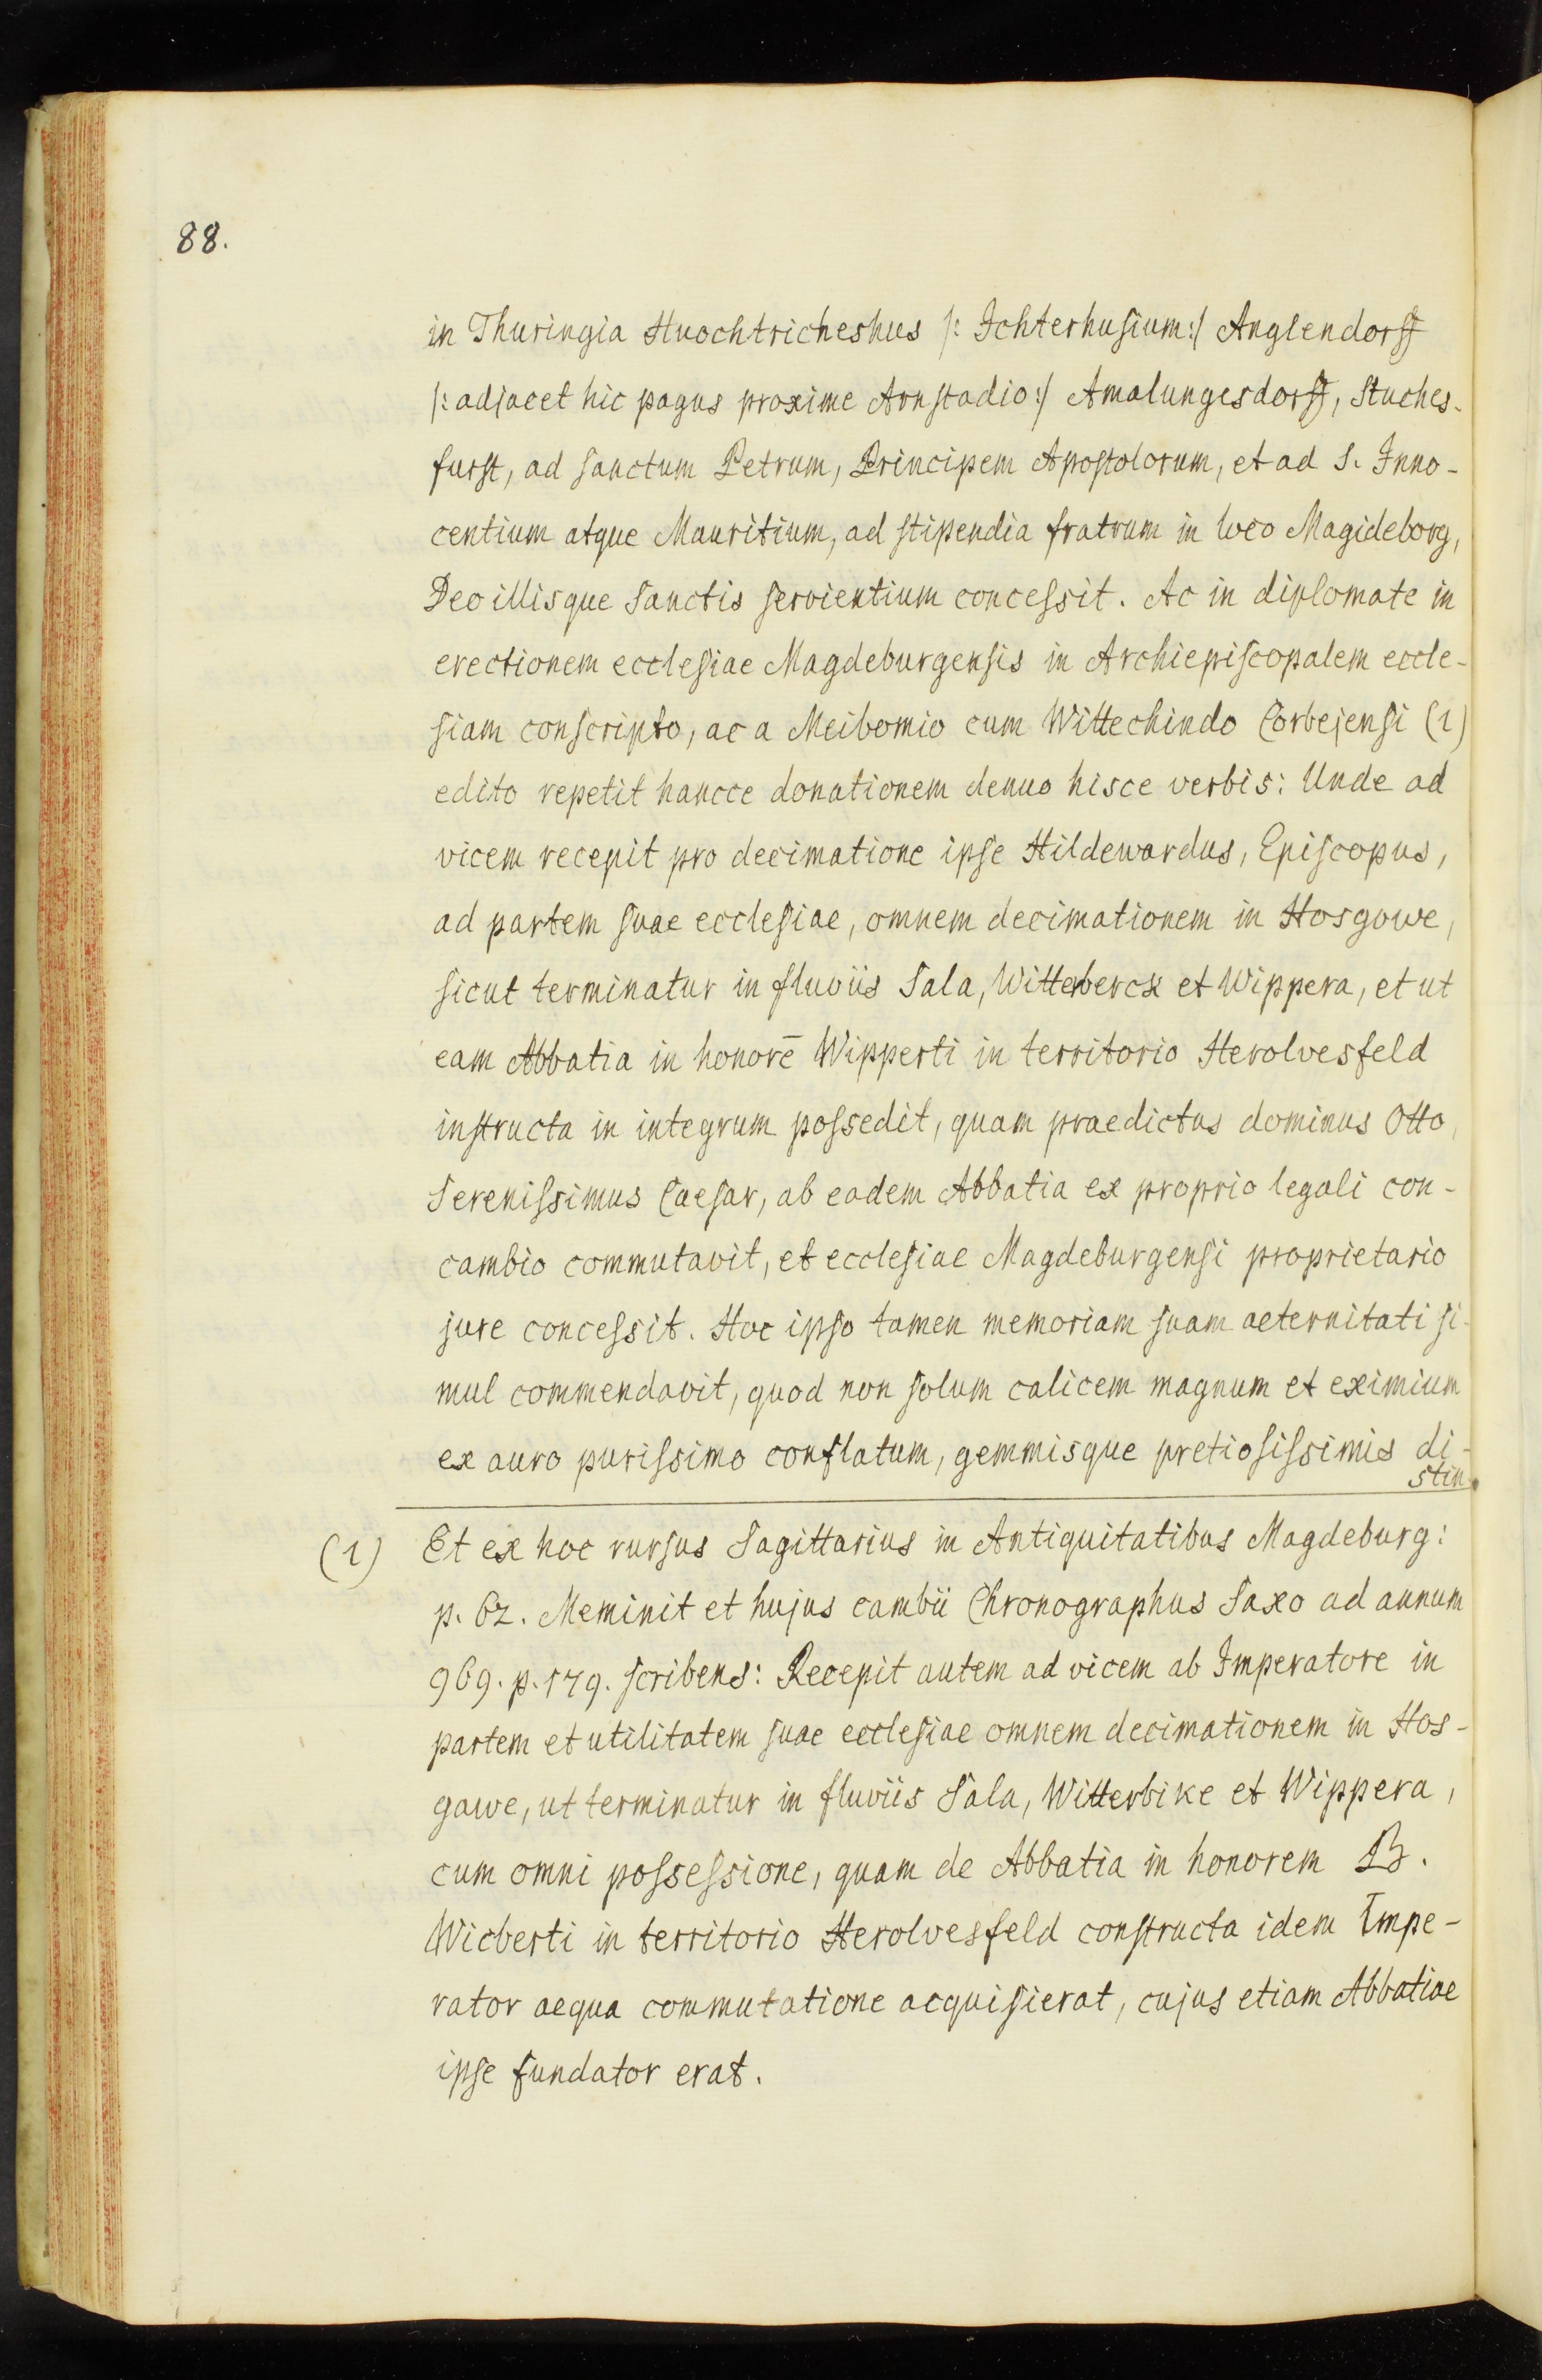 88.
in Thuringia Huochtricheshus /: Ichterhusium:/ Anglendorff
/: adjacet hic pagus proxime Arnstadio:/ Amalungesdorff, Stuches-
furst, ad sanctum Petrum, Principem Apostolorum, et ad S. Inno-
centium atque Mauritium, ad stipendia fratrum in loco Magideborg,
Deo illisque Sanctis servientium concessit. Ac in diplomate in
erectionem ecclesiae Magdeburgensis in Archiepiscopalem eccle-
siam conscripto, ac a Meibomio cum Wittechindo Corbejensi (1)
edito repetit hancce donationem denuo hisce verbis: Unde ad
vicem recepit pro decimatione ipse Hildewardus, Episcopus,
ad partem suae ecclesiae, omnem decimationem in Hosgowe,
sicut terminatur in fluviis Sala, Witterberck et Wippera, et ut
eam Abbatia in honorē Wipperti in territorio Herolvesfeld
instructa in integrum possedit, quam praedictus dominus Otto,
Serenissimus Caesar, ab eadem Abbatia ex proprio legali con-
cambio commutavit, et ecclesiae Magdeburgensi proprietario
jure concessit. Hoc ipso tamen memoriam suam aeternitati si-
mul commendavit, quod non solum calicem magnum et eximium
ex auro purissimo conflatum, gemmisque pretiosissimis di-
stin
(1) Et ex hoc rursus Sagittarius in Antiquitatibus Magdeburg:
p. 62. Meminit et hujus cambii Chronographus Saxo ad annum
969. p. 179. scribens: Recepit autem ad vicem ab Imperatore in
partem et utilitatem suae ecclesiae omnem decimationem in Hos-
gawe, ut terminatur in fluviis Sala, Witterbike et Wippera,
cum omni possessione, quam de Abbatia in honorem B.
Wicberti in territorio Herolvesfeld constructa idem Impe-
rator aequa commutatione acquisierat, cujus etiam Abbatiae
ipse fundator erat.